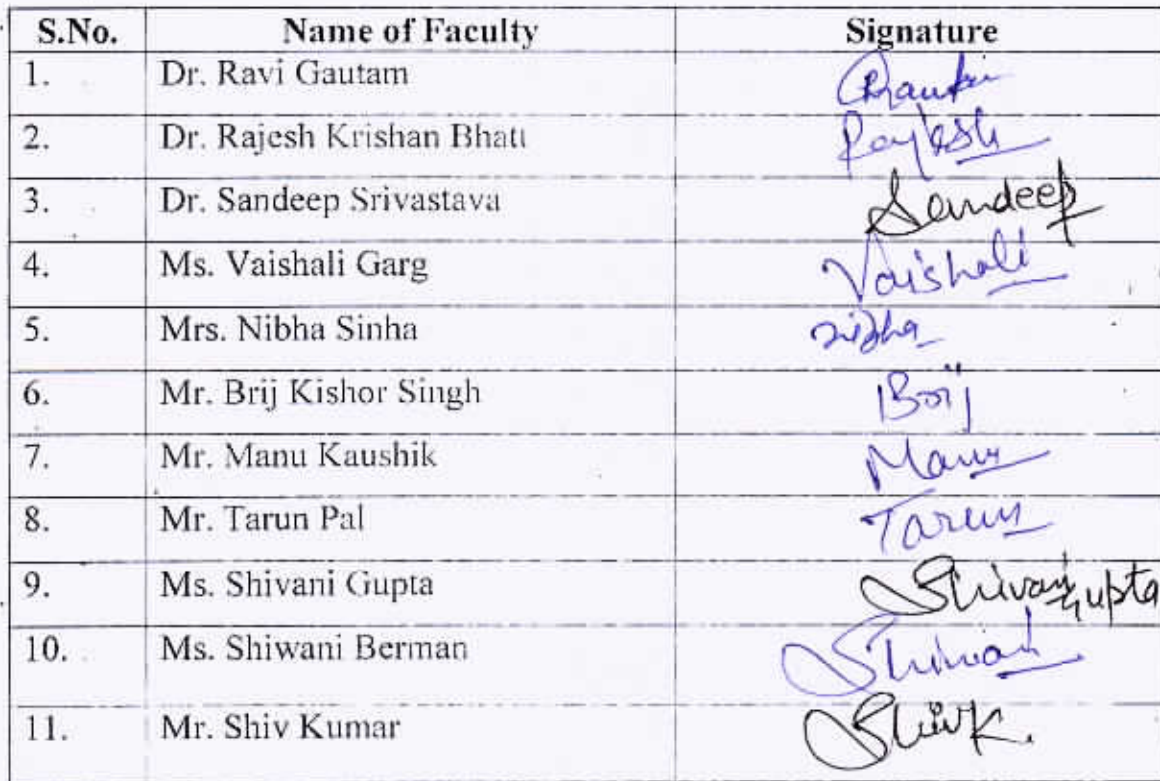 S.No. Name of Faculty Signature
1. Dr. Ravi Gautam
2. Dr. Rajesh Krishan Bhatt Rajesh
3. Dr. Sandeep Srivastava Sandeep
4. Ms. Vaishali Garg Vaishali
5. Mrs. Nibha Sinha nibha
6. Mr. Brij Kishor Singh Brij
7. Mr. Manu Kaushik Manu
8. Mr. Tarun Pal Tarun
9. Ms. Shivani Gupta Shivani Gupta
10. Ms. Shiwani Berman Shiwani
11. Mr. Shiv Kumar Shiv K.